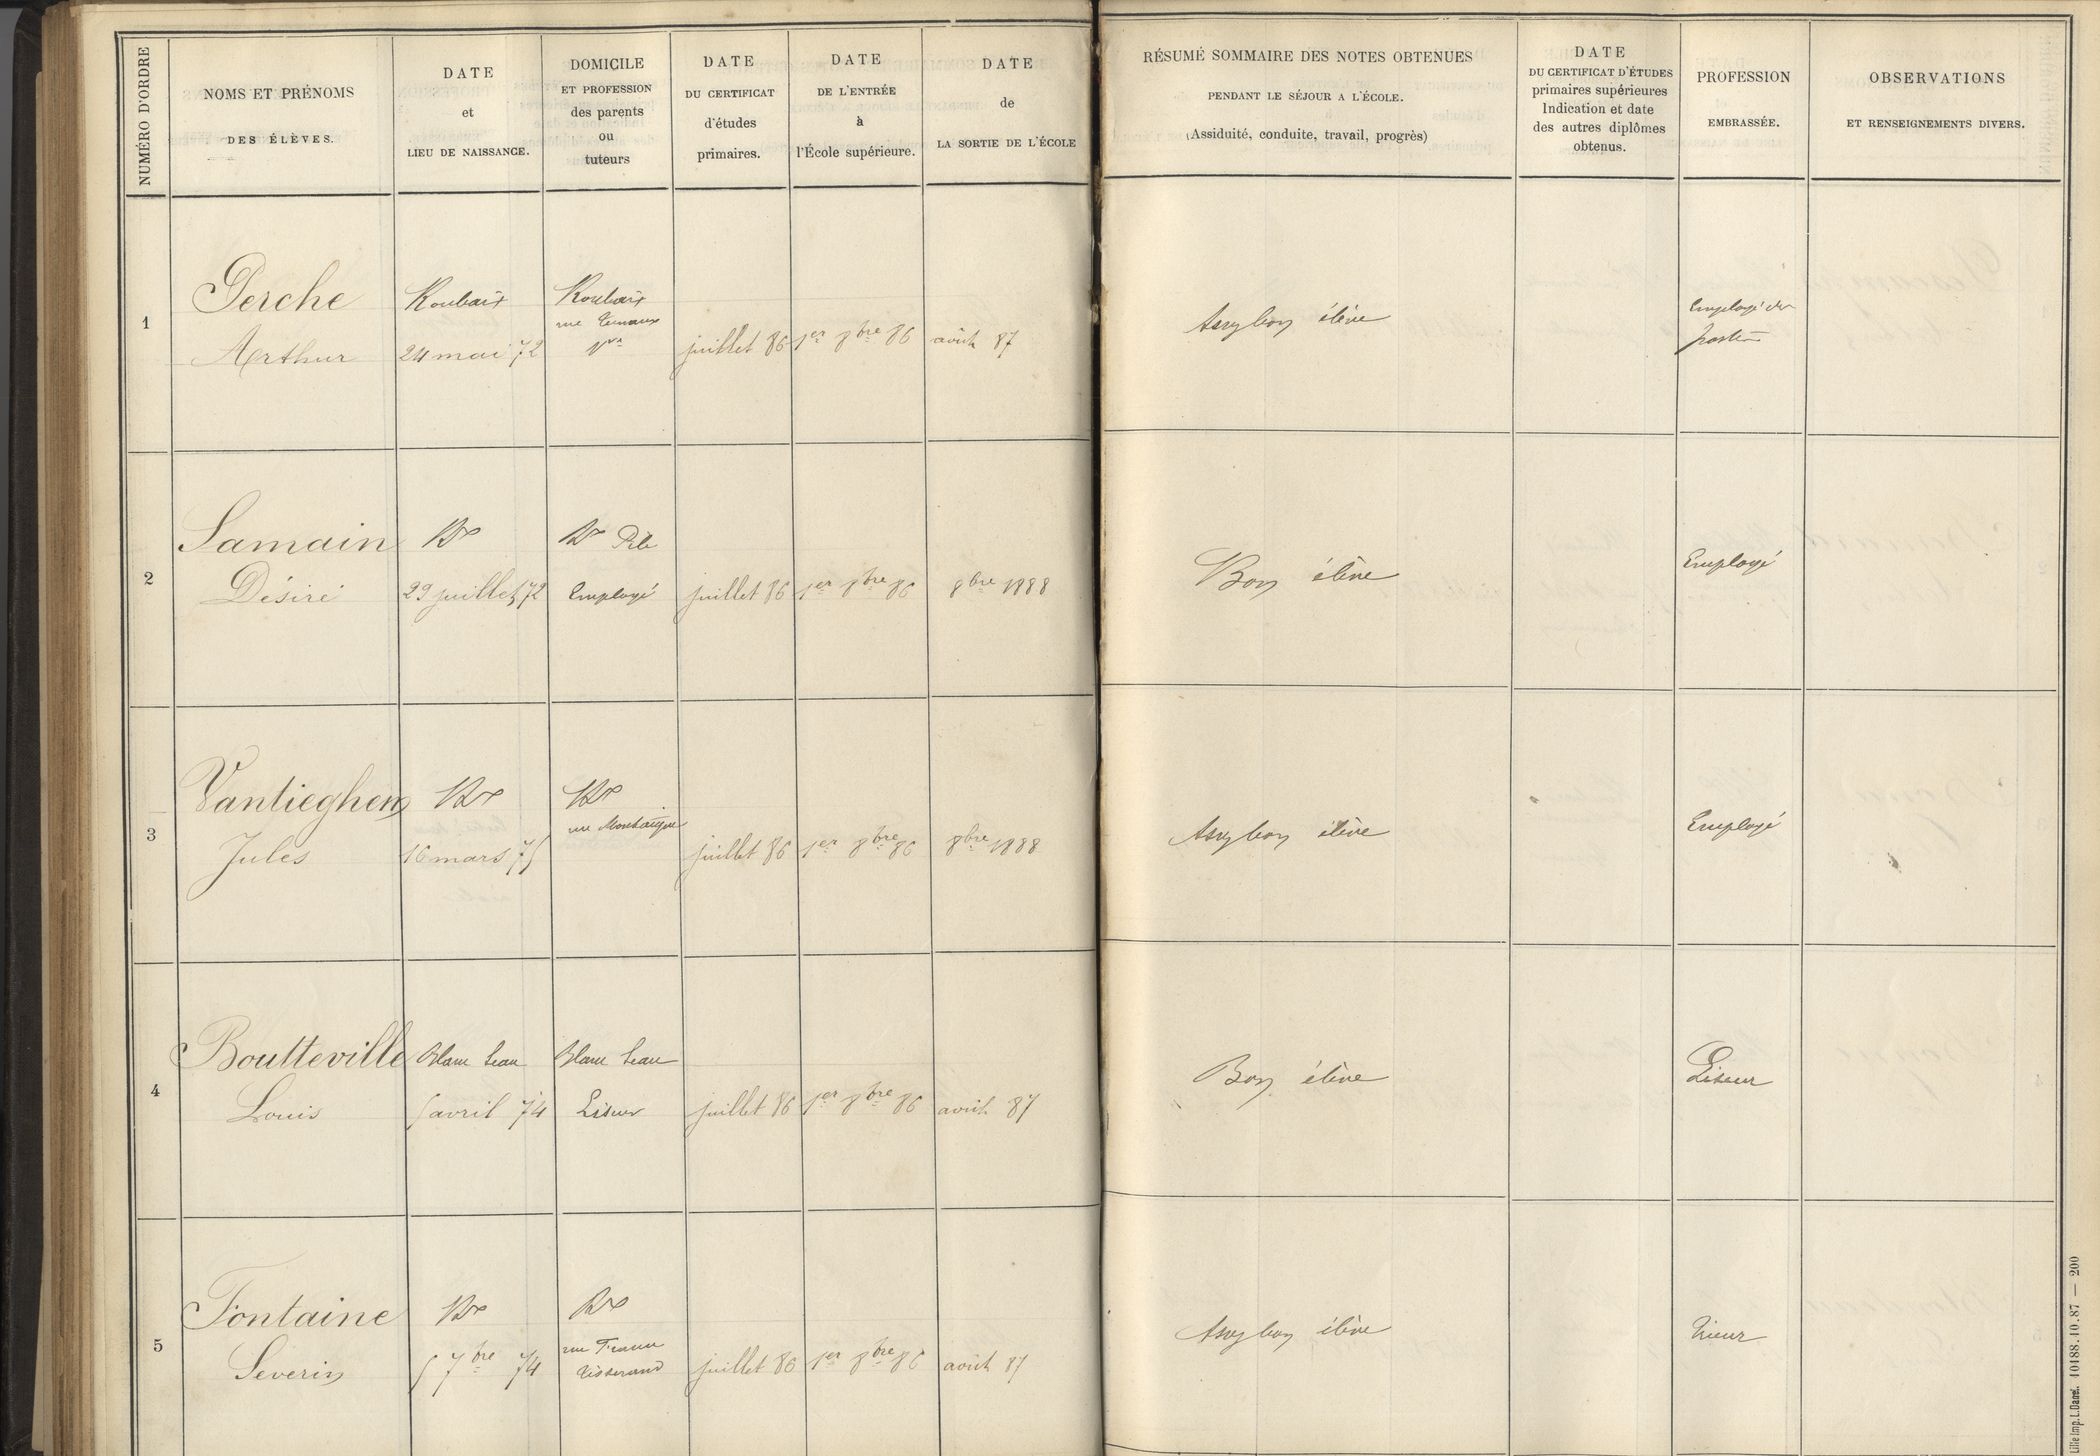 NUMÉRO D'ORDRE
NOMS ET PRÉNOMS
DES ÉLÈVES.
DATE
et
LIEU DE NAISSANCE.
DOMICILE
ET PROFESSION
des parents
ou
tuteurs
DATE
DU CERTIFICAT
d'études
primaires.
DATE
DE L'ENTRÉE
à
l'École supérieure.
DATE
de
LA SORTIE DE L'ÉCOLE
RÉSUMÉ SOMMAIRE DES NOTES OBTENUES
PENDANT LE SÉJOUR A L'ÉCOLE.
(Assiduité, conduite, travail, progrès)
DATE
DU CERTIFICAT D'ÉTUDES
primaires supérieures
Indication et date
des autres diplômes
obtenus.
PROFESSION
EMBRASSÉE.
OBSERVATIONS
ET RENSEIGNEMENTS DIVERS.
1
Perche
Arthur
Roubaix
24 mai 72
Roubaix
rue Ternaux
Vve
juillet 86
1er 8bre 86
août 87
Assez bon élève
Employé des
postes
2
Samain
Désiré
Rx
29 juillet 72
Rx Pile
Employé
juillet 86
1er 8bre 86
8bre 1888
Bon élève
Employé
3
Vantieghem
Jules
Rx
16 mars 75
Rx
rue Montaigne
juillet 86
1er 8bre 86
8bre 1888
Assez bon élève
Employé
4
Boutteville
Louis
Blanc Seau
5 avril 74
Blanc Seau
Liseur
juillet 86
1er 8bre 86
août 87
Bon élève
Liseur
5
Fontaine
Severin
Rx
5 7bre 74
Rx
rue
Tisserand
juillet 86
1er 8bre 86
août 87
Assez bon élève
Trieur
Lille Imp. L. Danel. 10188.10.87 — 200